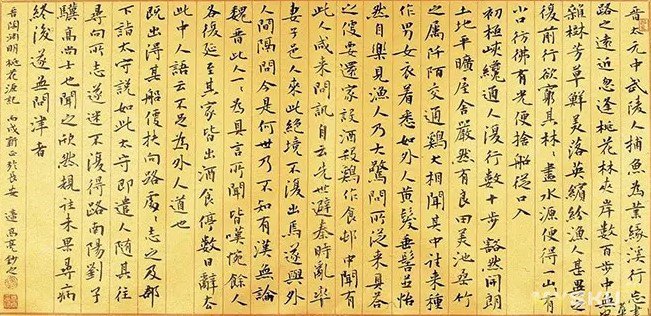 晉太元中武陵人捕魚為業緣溪行忘
路之遠近忽逢桃花林夾岸數百步中無
雜樹芳草鮮美落英繽紛漁人甚異之
復前行欲窮其林盡水源便得一山有
小口彷彿有光便捨船從口入
初極狹纔通人復行數十步豁然開朗
土地平曠屋舍嚴然有良田美池桑竹
之属阡陌交通鷄犬相聞其中往来種
作男女衣着悉如外人黄髮垂髫並怡
然自樂見漁人乃大驚問所從来具答
之便要還家設酒殺鷄作食邨中聞有
此人咸来問訊自云先世避秦時亂率
妻子邑人来此絕境不復出焉遂與外
人間隔問今是何世乃不知有漢無論
魏晉此人一一為具言所聞皆嘆惋餘人
各復延至其家皆出酒食停數日辭去
此中人語云不足為外人道也
既出得其船便扶向路處處志之及郡
下詣太守說如此太守即遣人隨其往
尋向所志遂迷不復得路南陽劉子
驥高尚士也聞之欣然規往未果尋病
終後遂無問津者
晉陶淵明桃花源記 丙戌新正於長安